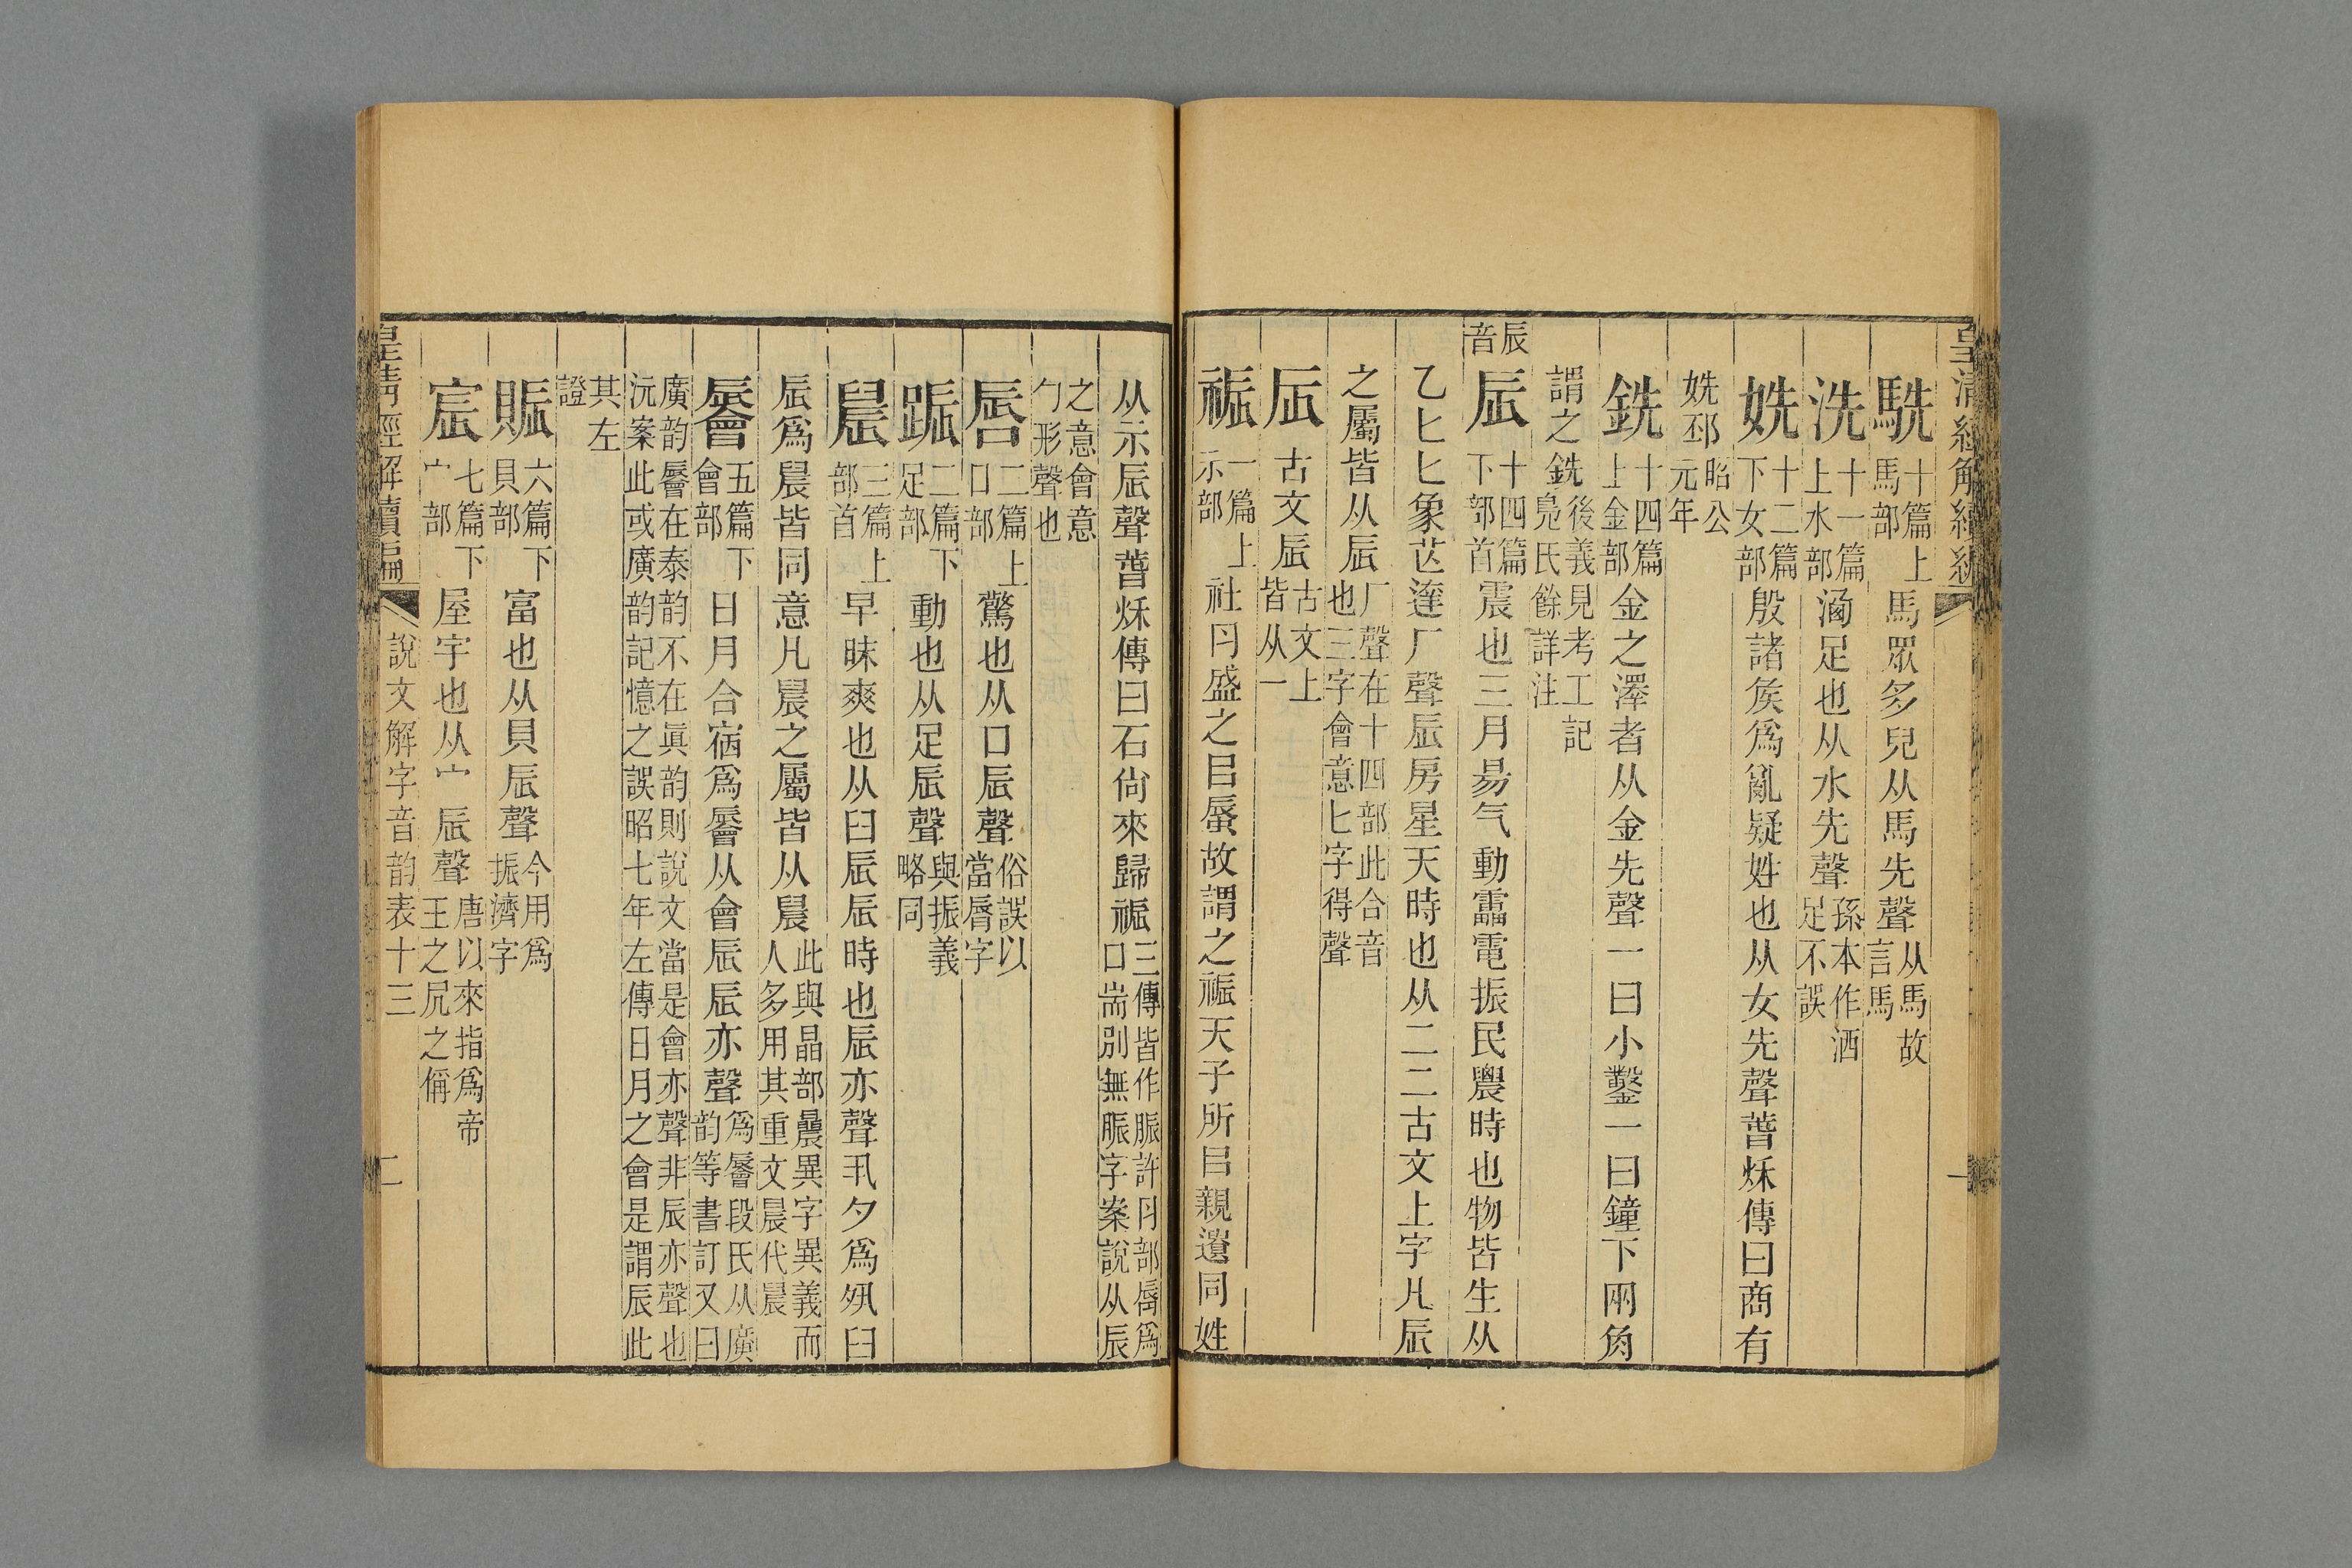 駪十篇上馬部馬眾多皃从馬先聲从馬故言馬
洗十一篇上水部洒足也从水先聲孫本作酒足不誤
姺十二篇下女部殷諸矦爲亂疑姓也从女先聲萅秌傳曰商有
姺邳昭公元年
銑十四篇上金部金之澤者从金先聲一曰小鑿一曰鐘下兩角
謂之銑後義見考工記鳧氏餘詳注
辰音
辰十四篇下部首震也三月昜气動靁電振民農時也物皆生从
乙匕匕象芒達厂聲辰房星天時也从二二古文上字凡辰
之屬皆从辰厂聲在十四部此合音也三字會意匕字得聲
𠨷古文辰古文上皆从一
祳一篇上示部社肉盛之㠯蜃故謂之祳天子所㠯親遺同姓
从示辰聲萅秌傳曰石尙來歸祳三傳皆作脤許肉部脣爲口耑別無脤字案說从辰
之意會意勹形聲也
唇二篇上口部驚也从口辰聲俗誤以當脣字
踬二篇下足部動也从足辰聲與振義略同
晨三篇上部首早昧爽也从臼辰辰時也辰亦聲丮夕爲夙臼
辰爲晨皆同意凡晨之屬皆从晨此與晶部曟異字異義而人多用其重文晨代晨
䢈五篇下會部日月合宿爲䢈从會辰辰亦聲爲䢈段氏从廣韵等書訂又曰
廣韵䢈在泰韵不在眞韵則說文當是會亦聲非辰亦聲也沅案此或廣韵記憶之誤昭七年左傳日月之會是謂辰此
其左證
賑六篇下貝部富也从貝辰聲今用爲振濟字
宸七篇下宀部屋宇也从宀辰聲唐以來指爲帝王之凥之偁
皇清經解續編
說文解字音韵表十三
二